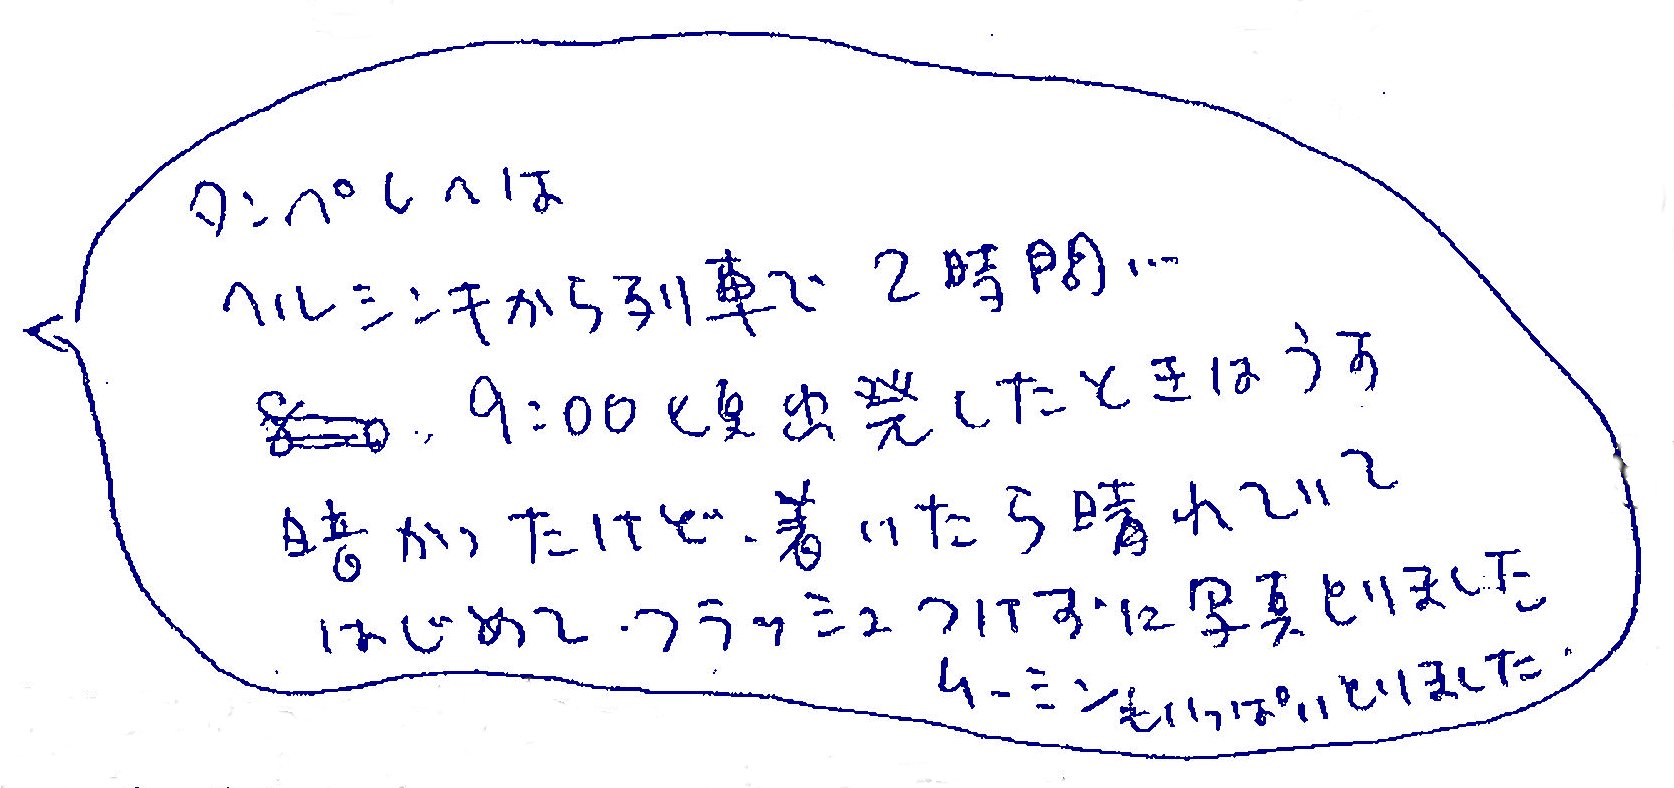 タンペレへは
ヘルシンキから列車で2時間…
9:00頃出発したときはうす
暗かったけど、着いたら晴れていて
はじめて、フラッシュつけずに写真とりました
ムーミンもいっぱいとりました.